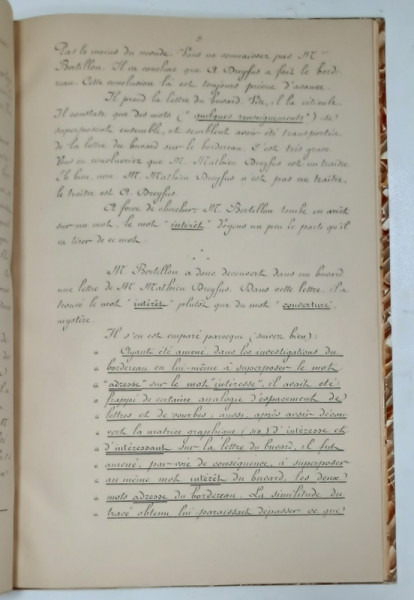 5
Pas le moins du monde. Vous ne connaissez pas Mr
Bertillon. Il va conclure que A. Dreyfus a fait le borde-
reau. Cette conclusion là est toujours prévue d'avance.
Il prend la lettre du buvard. Vite, il la calcule.
Il constate que des mots ("quelques renseignements") se
superposent ensemble, et semblent avoir été transportés
de la lettre du buvard sur le bordereau. C'est très grave.
Vous en concluriez que M. Mathieu Dreyfus est un traître.
Eh bien, non. M. Mathieu Dreyfus n'est pas un traître,
le traître est A. Dreyfus.
A force de chercher, M. Bertillon tombe en arrêt
sur un mot, le mot "intérêt". Voyons un peu le parti qu'il
va tirer de ce mot.
M. Bertillon a donc découvert dans un buvard
une lettre de M. Mathieu Dreyfus. Dans cette lettre, il a
trouvé le mot "intérêt" plutôt que du mot "couverture",
mystère.
Il s'en est emparé parceque (suivez bien):
« Ayant été amené, dans les investigations du
« bordereau en lui-même à superposer le mot
« "adresse" sur le mot "intéresse", il avait été
« frappé de certaine analogie d'espacement de
« lettres et de courbes; aussi, après avoir décou-
« vert la matrice graphique (sic) d'intéresse et
« d'intéressant sur la lettre du buvard, il fut
« amené, par voie de conséquence, à superposer
« au même mot intérêt du buvard, les deux
« mots adresse du bordereau. La similitude du
« tracé obtenu lui paraissait dépasser ce que